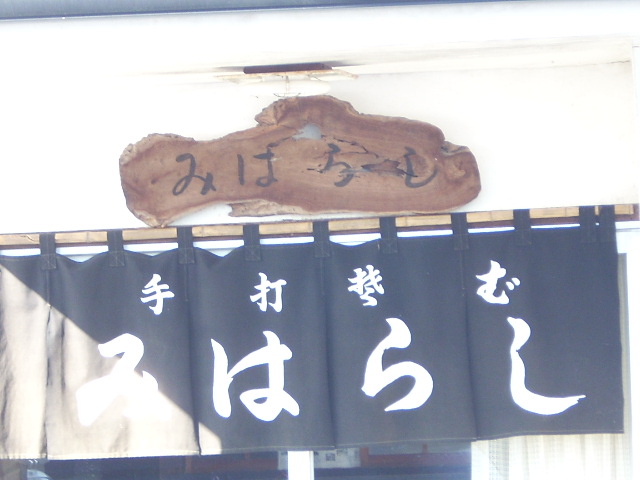 みはらし
手打楚む
みはらし